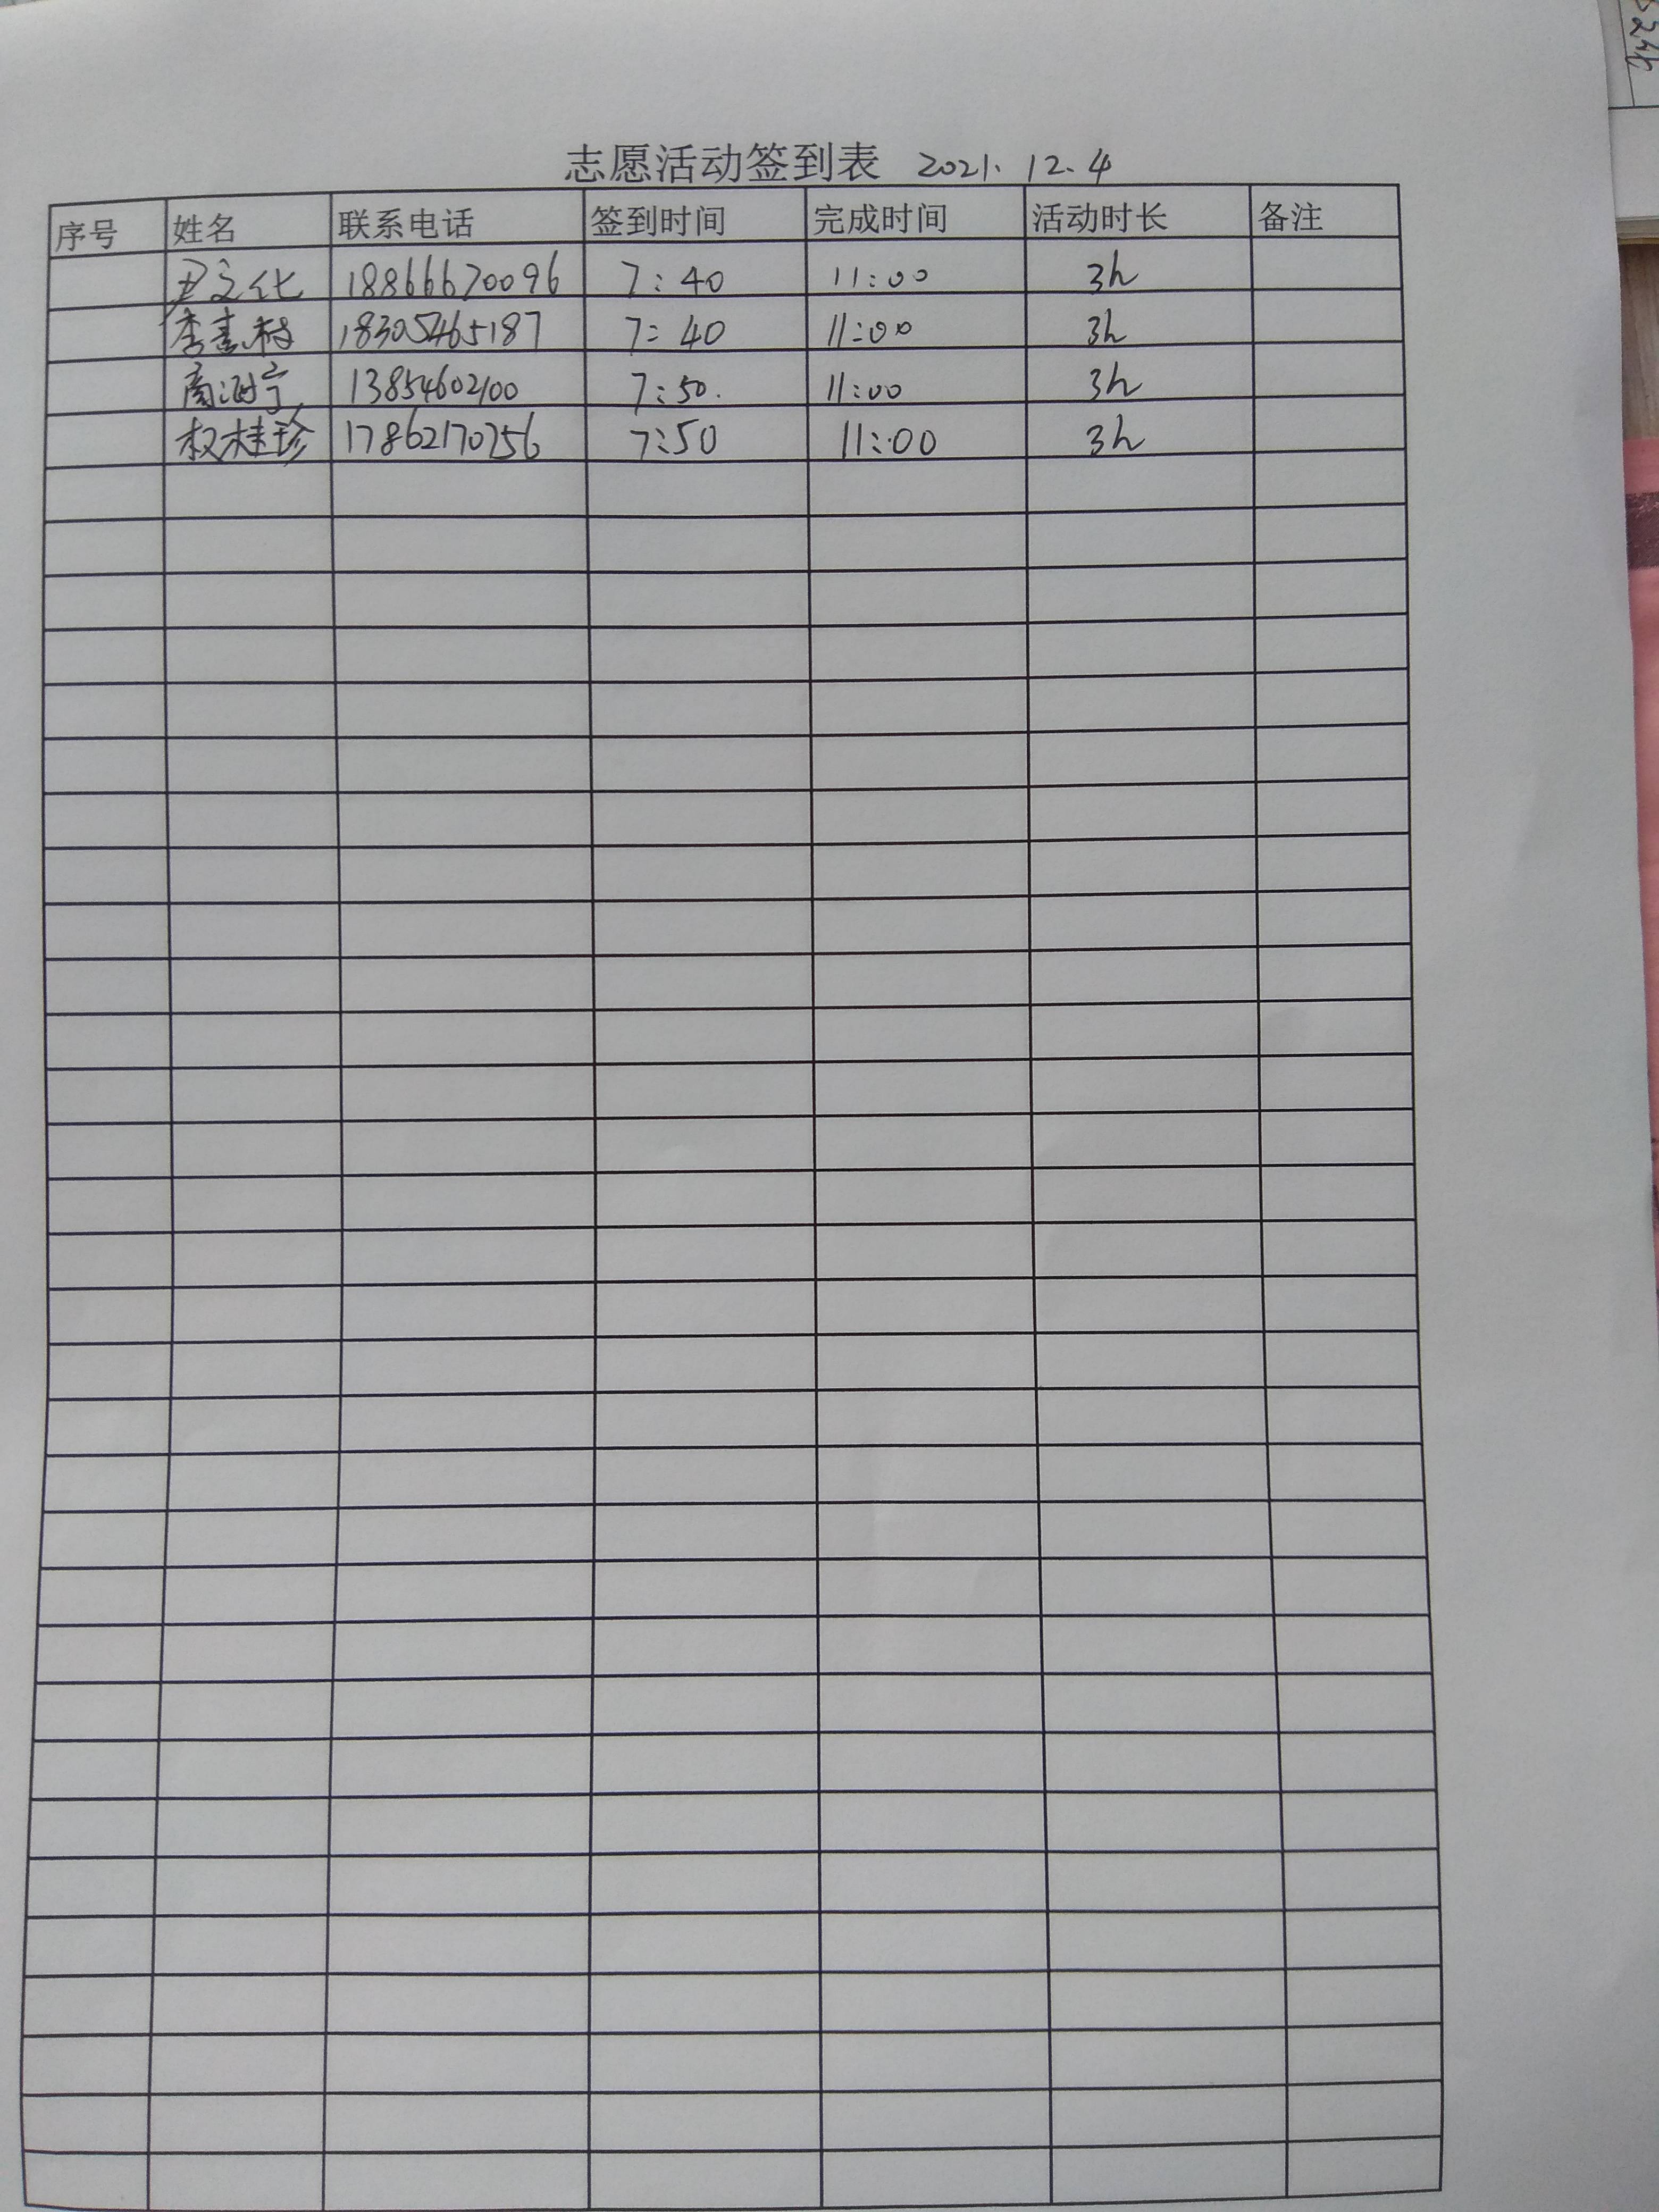 志愿活动签到表 2021.12.4
序号 姓名 联系电话 签到时间 完成时间 活动时长 备注
尹文化 18866670096 7:40 11:00 3h
18305465187 7:40 11:00 3h
13854602100 7:50. 11:00 3h
权桂珍 17862170756 7:50 11:00 3h